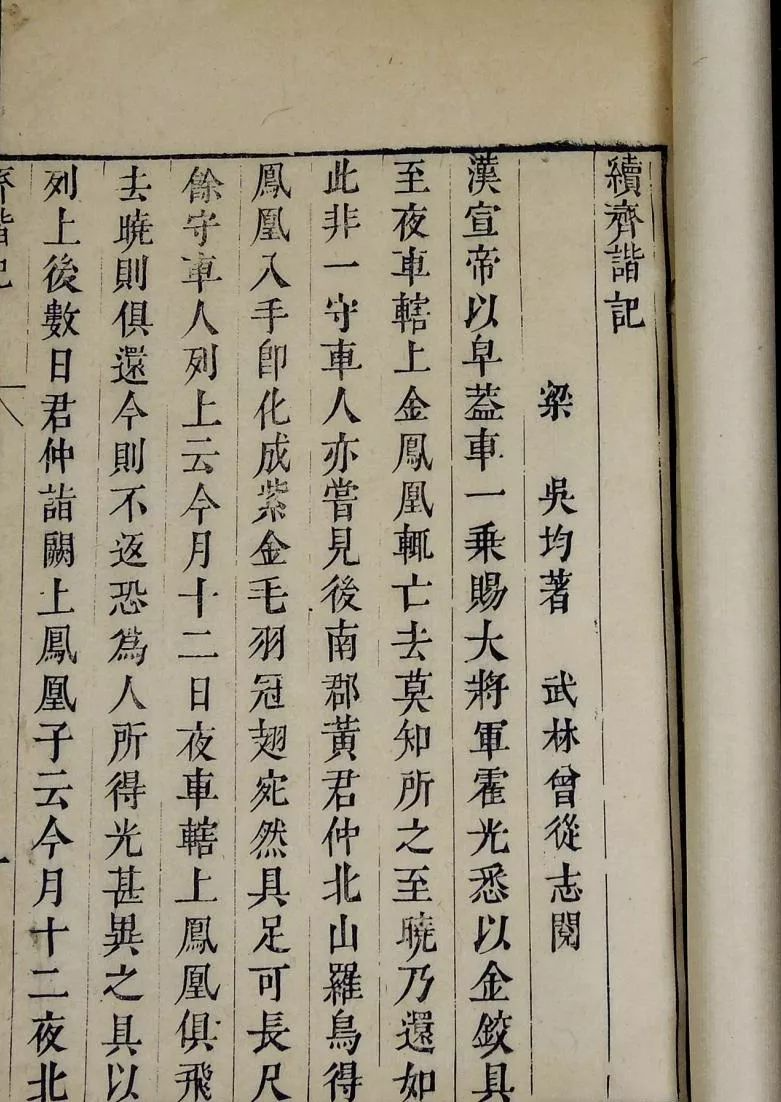 續齊諧記
梁 吳均著 武林曾從志閱
漢宣帝以皁葢車一乗賜大將軍霍光悉以金鉸具
至夜車轄上金鳳凰輒亡去莫知所之至曉乃還如
此非一守車人亦嘗見後南郡黃君仲北山羅鳥得
鳳凰入手卽化成紫金毛羽冠翅宛然具足可長尺
餘守車人列上云今月十二日夜車轄上鳳凰俱飛
去曉則俱還今則不返恐爲人所得光甚異之具以
列上後數日君仲詣闕上鳳凰子云今月十二夜北
齊諧記